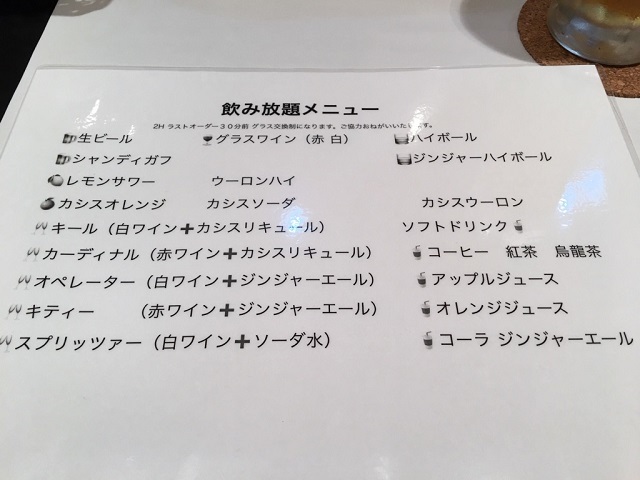 飲み放題メニュー
2H ラストオーダー30分前 グラス交換制になります。ご協力おねがいいたします。
生ビール グラスワイン(赤 白) ハイボール
シャンディガフ ジンジャーハイボール
レモンサワー ウーロンハイ
カシスオレンジ カシスソーダ カシスウーロン
キール(白ワイン+カシスリキュール) ソフトドリンク
カーディナル(赤ワイン+カシスリキュール) コーヒー 紅茶 烏龍茶
オペレーター(白ワイン+ジンジャーエール) アップルジュース
キティー (赤ワイン+ジンジャーエール) オレンジジュース
スプリッツァー(白ワイン+ソーダ水) コーラ ジンジャーエール